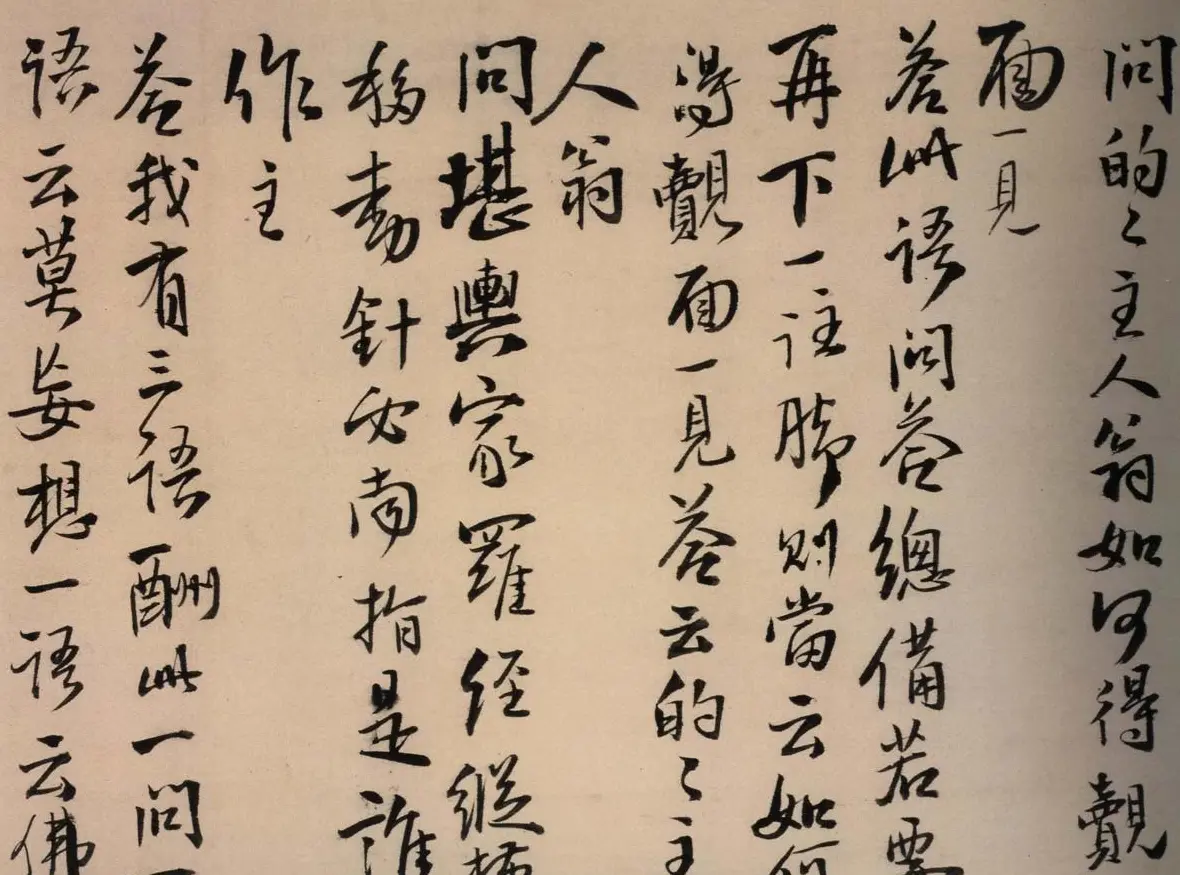 問的〻主人翁如何得覿
面一見
答此語問答總備若要
再下一註脚則當云如何
得覿面一見答云的〻主
人翁
問堪輿家羅経縱橫
移動針必南指是誰
作主
答我有三語酬此一問一
語云莫妄想一語云佛